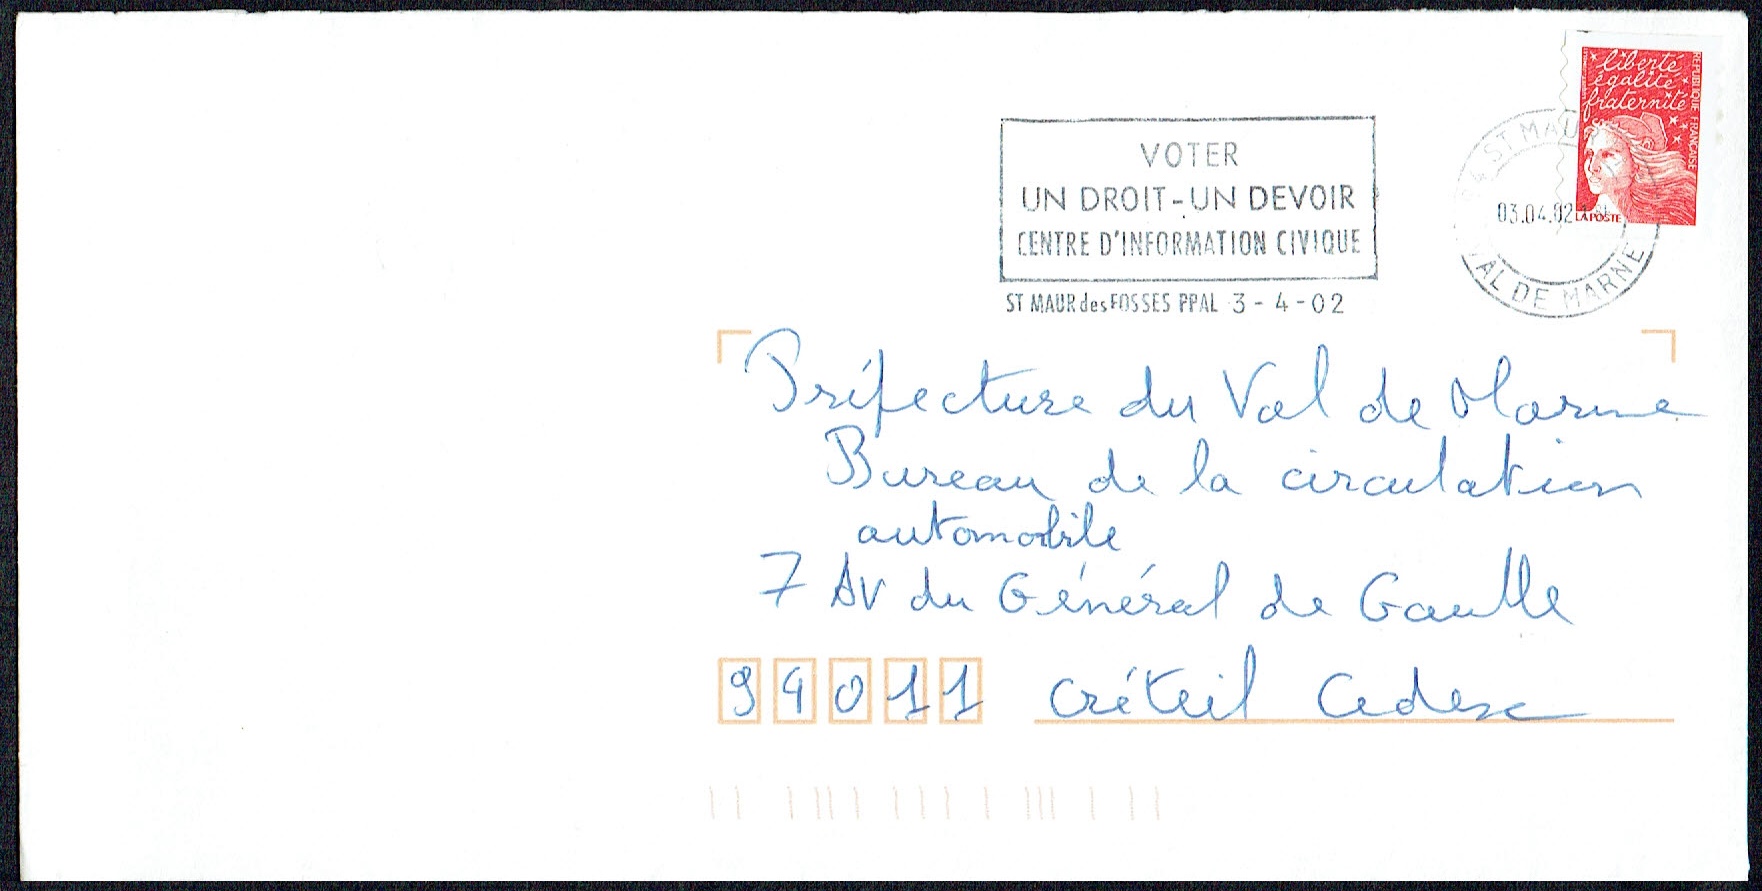 liberté
égalité
fraternité
RÉPUBLIQUE FRANÇAISE
LA POSTE
VOTER
UN DROIT - UN DEVOIR
CENTRE D'INFORMATION CIVIQUE
ST MAUR des FOSSES PPAL 3 - 4 - 02
ST MAUR
03.04.02
VAL DE MARNE
Préfecture du Val de Marne
Bureau de la circulation
automobile
7 Av du Général de Gaulle
94011 Créteil Cedex